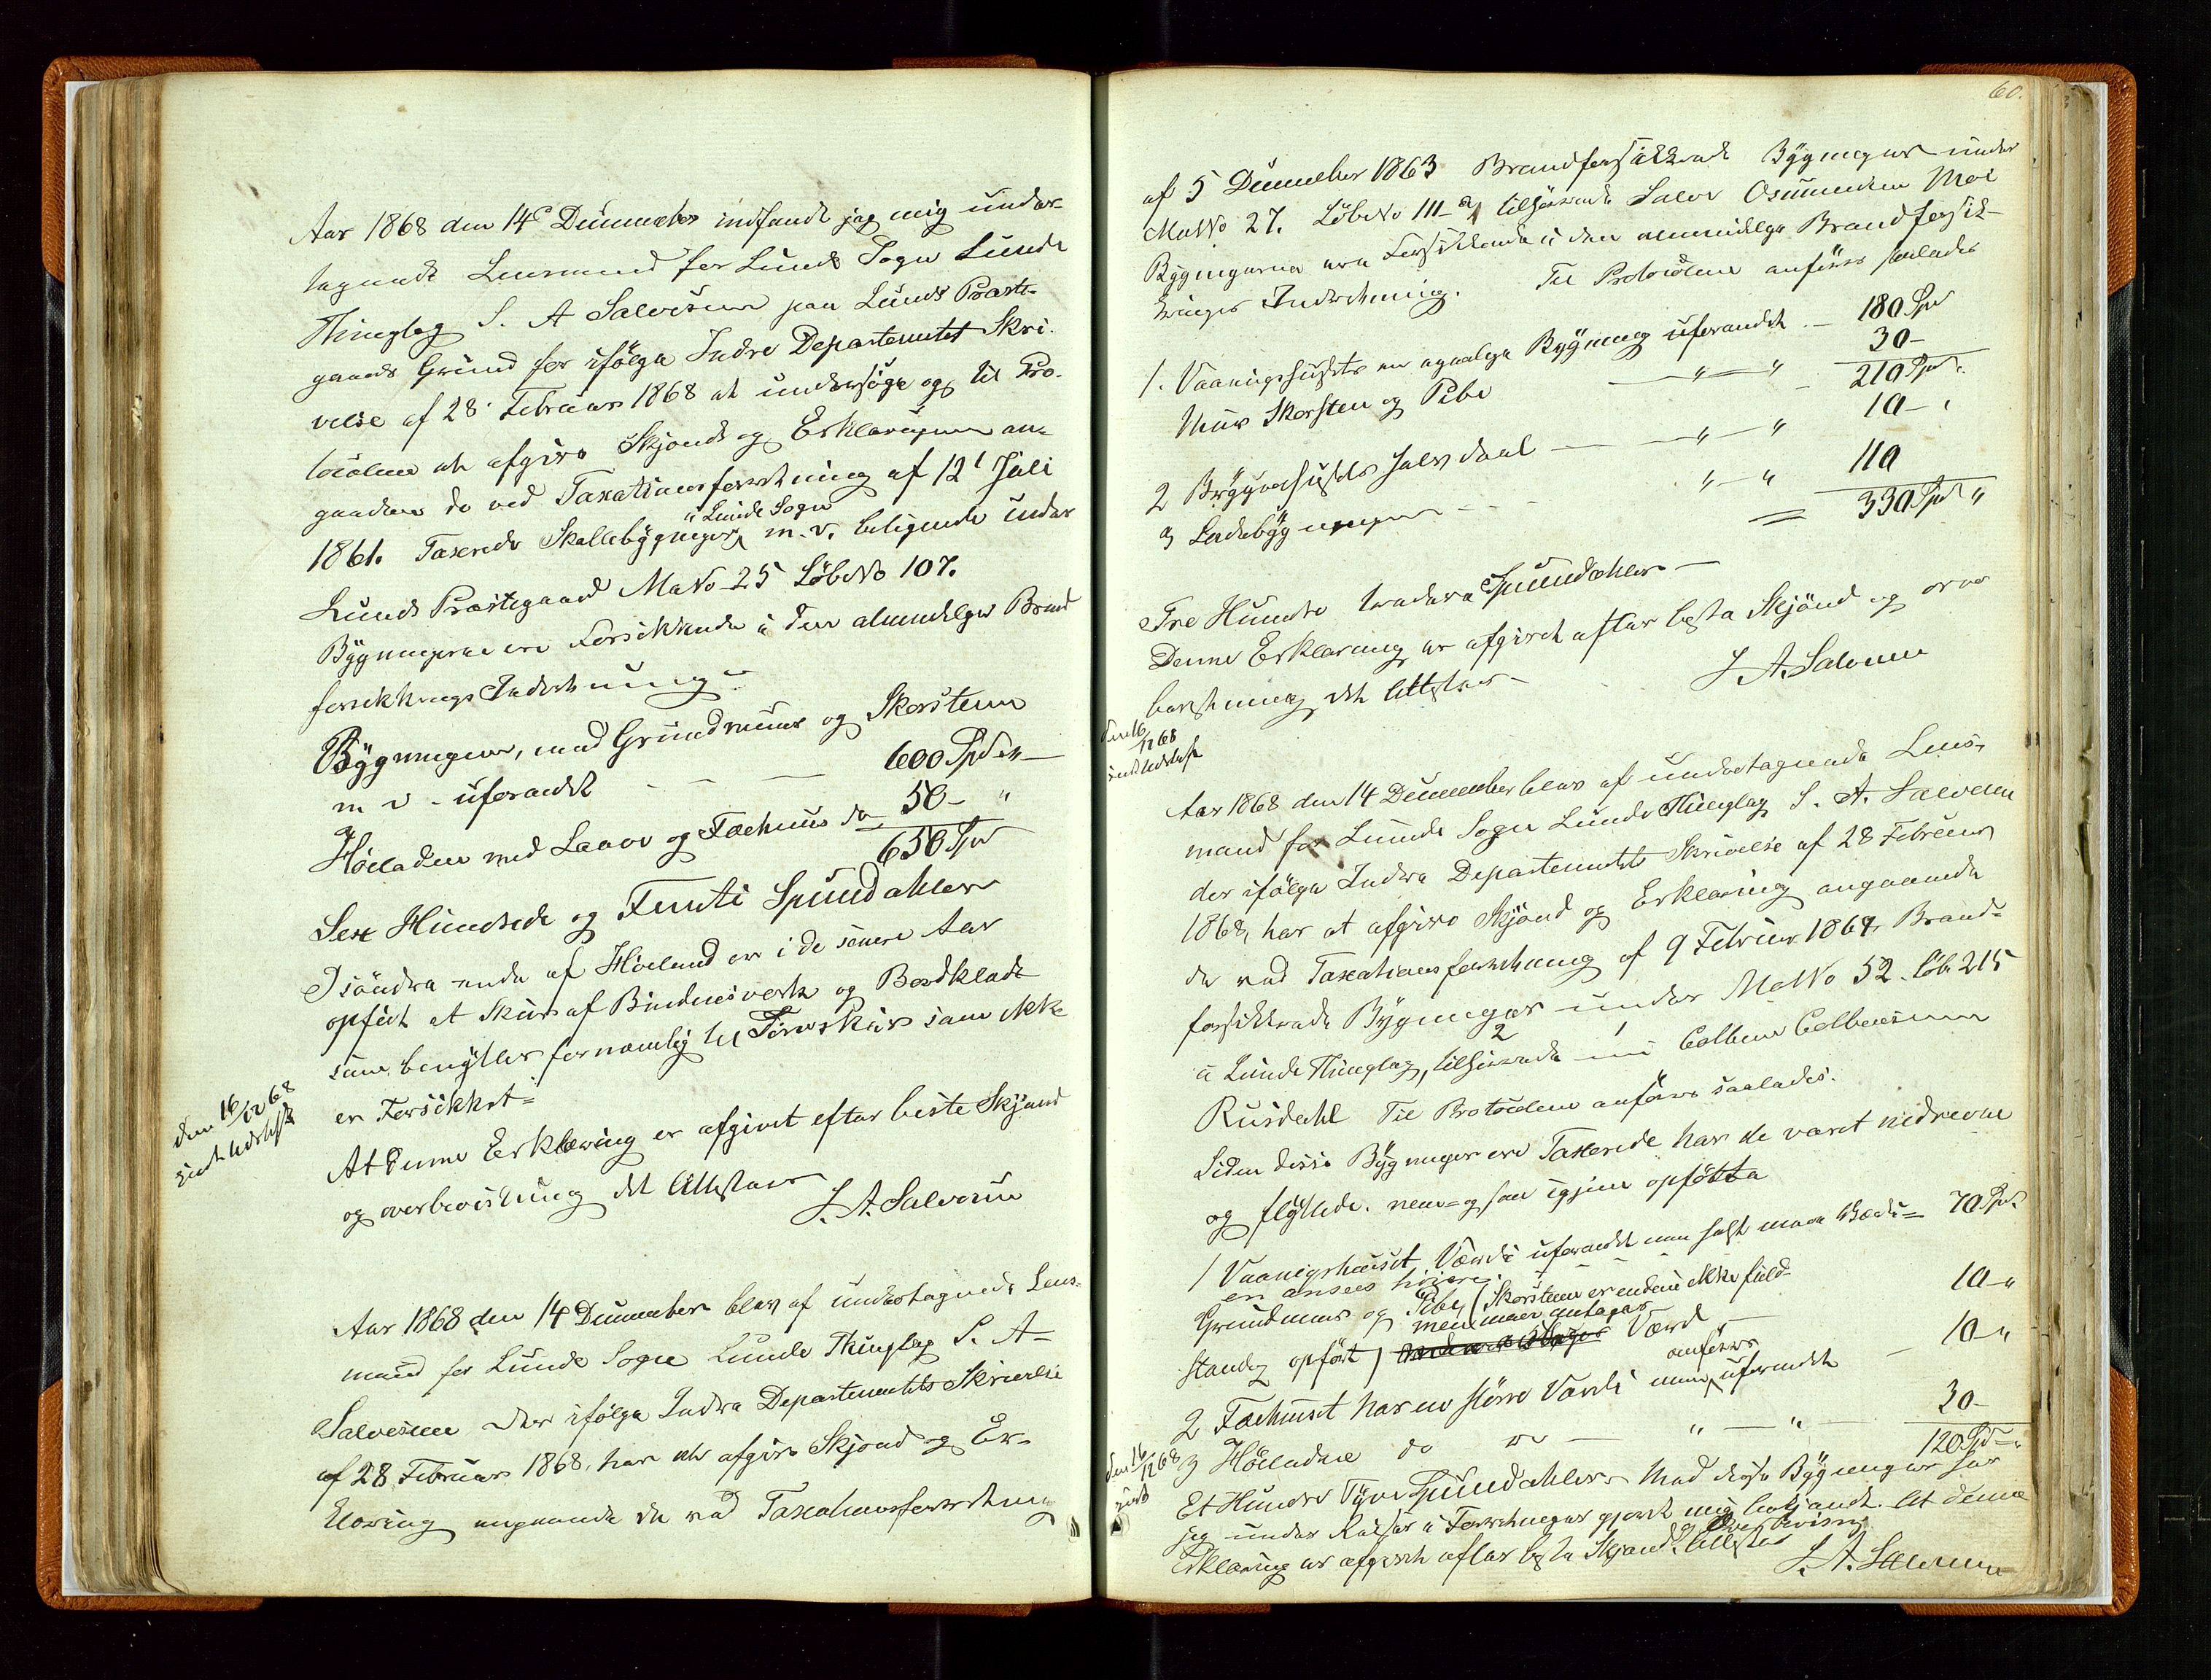 Aar 1868 den 14de December indfandt jeg mig under-
tegnede Lensmand for Lunds Sogn Lunde
Thinglag S. A Salvesen paa Lunds Præste-
gaards Grund for ifølge Indre Departementet Skri-
velse af 28 Februar 1868 at undersøge og til Pro-
tocolen at afgive Skjønd og Erklæringen an-
gaaende de ved Taxationsforretning af 12t Juli
i Lunde Sogn
1861. Taxerede Skallebygninger, m. v. beligende under
Lunds Præstegaard MaNo 25 Løbe No 107.
Bygningerne ere Forsikkrede i den almindelige Brand
forsikkrings Indretning.
Bygningen, med Grundmuur og Skorsten
m v - uforandret 600 Spd "
Høeladen med Laave og Fæehuus do 50 - "
650 Spd
Sex Hundrede og Femti Speciedahler
I søndre ende af Høelaad er i de senere Aar
opført et Skur af Bindingsverk og Bordklædt
som benyttes fornæmlig til Tørvskur som ikke
er Forsikkret
At denne Erklæring er afgivet efter beste Skjønd
og overbeviisning det Attesteres
S. A. Salvesen
den 16/12 68
Aar 1868 den 14 December blev af undertegnede Lens-
mand for Lunde Sogn Lunde Thinglag S. A
Salvesen der ifølge Indre Departementets Skrivelse
af 28 Februar 1868, har at afgive Skjønd og Er-
klæring angaaende de ved Taxationsforretning
60.
af 5 December 1863 Brandforsikkrede Bygninger under
MatNo 27. Løbe No 111 a, tilhørende Salve Osmundsen Moi
Bygningerne ere Forsikkrede i den almindelige Brandforsik-
krings Indretning. Til Protocolen anføres saaledes
1. Vaaningshuset en egentlige Bygning uforandret - 180 Spd
Muur Skorsten og Pibe " " 30 -
210 Spd.
2 Bryggerhuset halv deel " " 10 -
3 Ladebygningen " " 110
330 Spd "
Tre Hundre tredeve Speciedahler
Denne Erklæring er afgivet efter beste Skjønd og over
beviisning det Attesteres
S. A. Salvesen
den 16/12 68
Aar 1868 den 14 December blev af undertegnede Lens-
mand for Lunde Sogn Lunde Thinglag S. A. Salvesen
der ifølge Indre Departementets Skrivelse af 28 Februar
1868, har at afgive Skjønd og Erklæring angaaende
de ved Taxationsforretning af 9 Februar 1864 Brand-
forsikkrede Bygninger under MatNo 52. Løbe 215
i Lunde Thinglag, tilhørende nu Colben Colbensen
Rusdahl Til Protocolen anføres saaledes.
Siden disse Bygninger ere Taxerede har de været nedrevne
og flyttede. men og saa igjen opførte
1 Vaaningshuuset Værdi uforandret men helst maa Værdi= 70 Spd.
en ansees høiere.
Grundmuur og Pibe, (Skorsten er endnu ikke fuld- 10 "
men maa antages
standig opført) Værd
anføres
2 Fæehuuset har en større Værdi men uforandret 10 "
3 Høeladen do do " " 30 -
120 Spd "
Et Hundre Tyve Speciedahler. Med disse Bygninger har
jeg under Reiser i Forretninger gjort mig bekjendt. At denne
og Overbeviisng
Erklæring er afgivet efter beste Skjønd, Attesteres
S. A. Salvesen
den 16/12 68